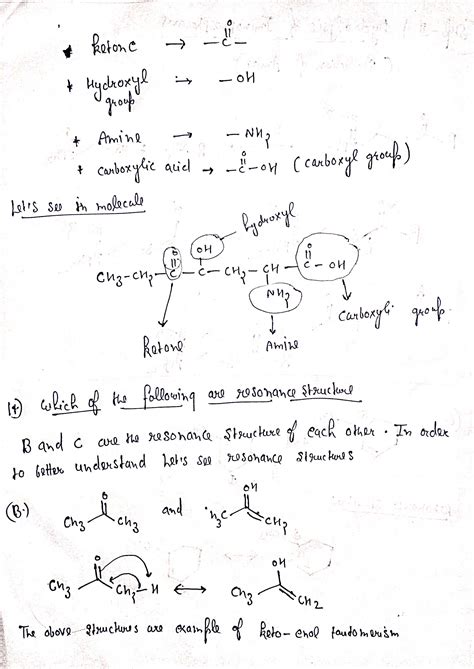 * Ketone → O -C-
* Hydroxyl → -OH
group
* Amine → -NH2
* carboxylic acid → O -C-OH (carboxyl group)
Let's see in molecule
hydroxyl
O OH O
CH3-CH2-C-C-CH2-CH-C-OH
NH2
ketone Amine carboxyl group
14) which of the following are resonance structure
B and C are the resonance structure of each other. In order
to better understand let's see resonance structures
(B.) O OH
CH3 CH3 and H3C CH2
O OH
CH3 CH2-H ↔ CH3 CH2
The above structures are example of keto-enol tautomerism